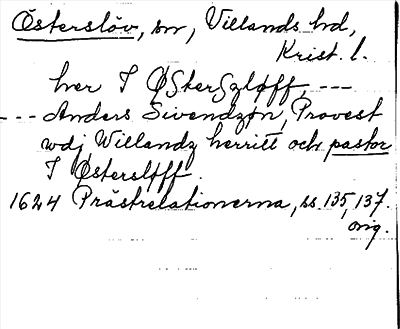 Österslöv, sn, Villands hd,
Krist. l.
her I ØSterSzløff, ---
--- Anders Sivendzøn, Provest
wdj Willandz herritt och pastor
I Østersløff.
1624 Prästrelationerna, ss. 135, 137.
orig.